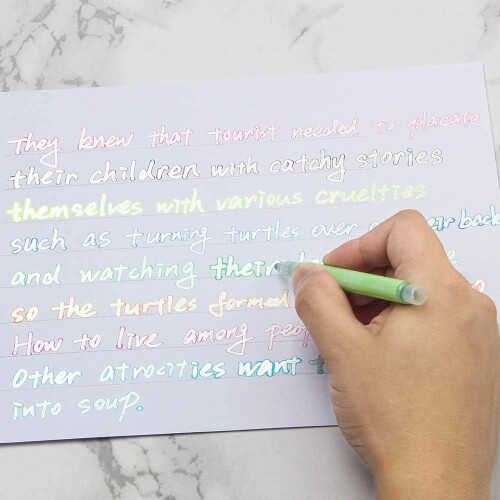 They knew that tourist needed to placate
their children with catchy stories
themselves with various cruelties
such as turning turtles over back
and watching their
so the turtles formed
How to live among peop
Other atrocities want
into soup.